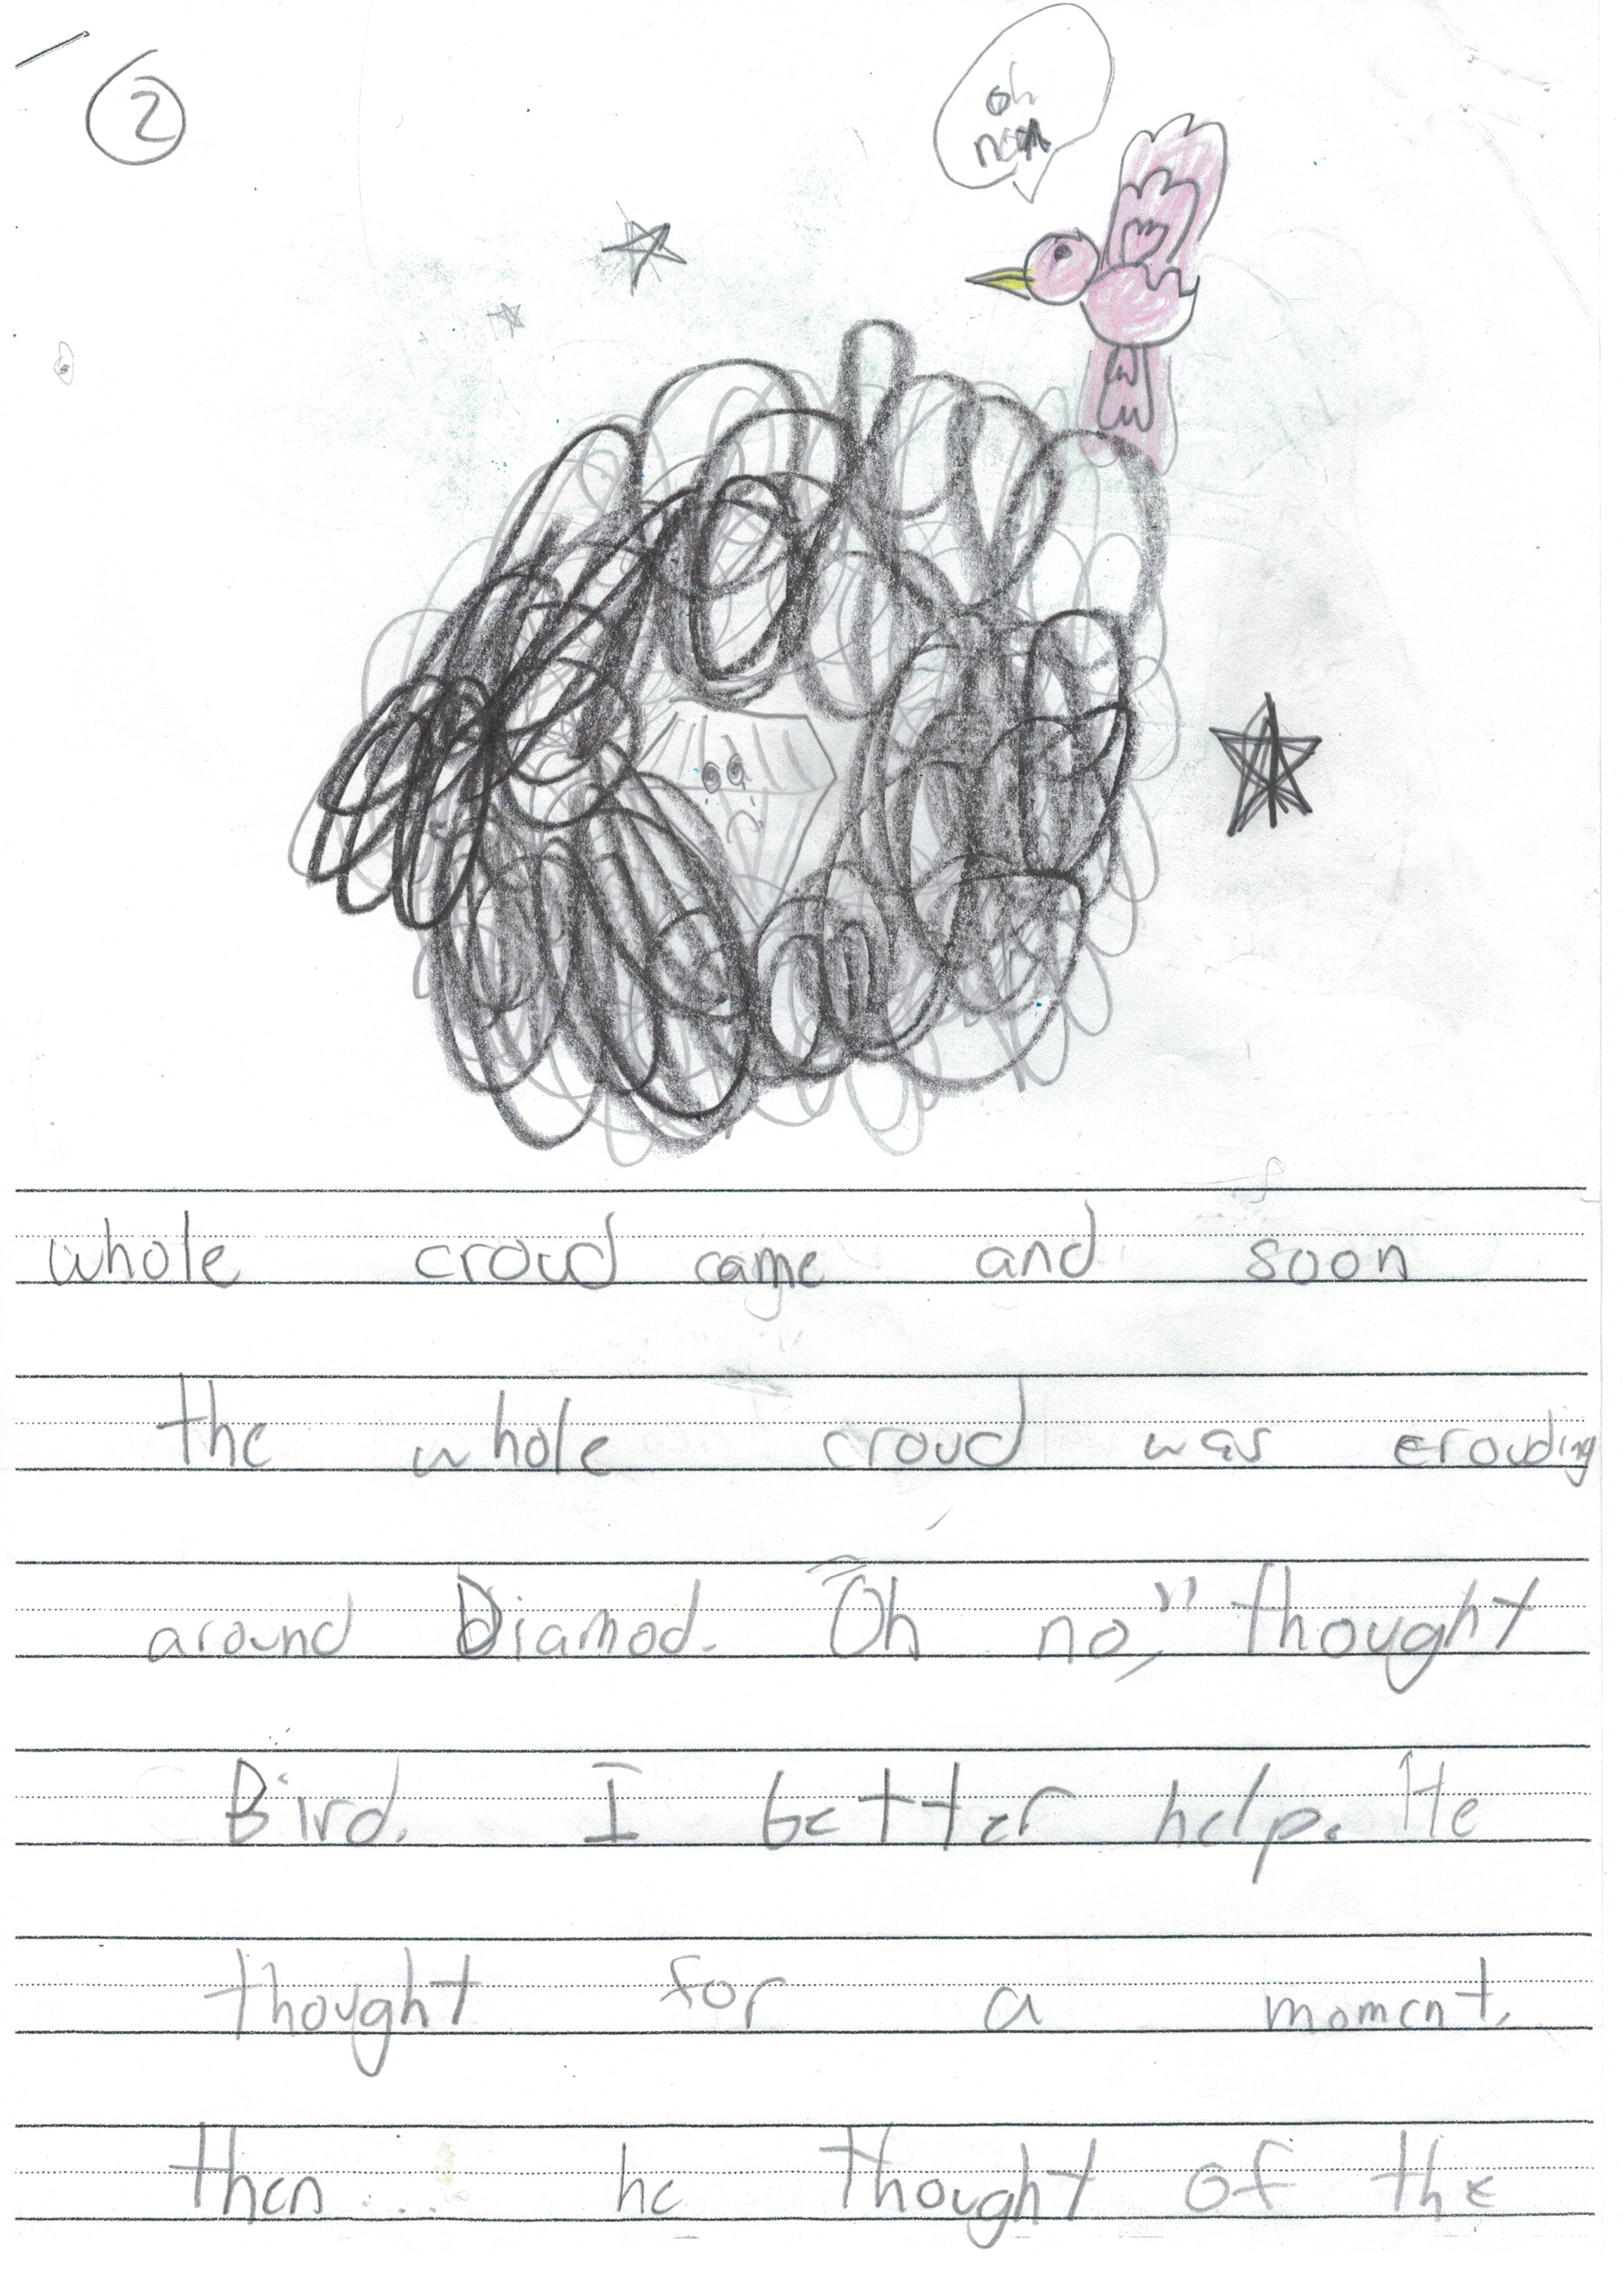 2
oh
no
whole croud came and soon
the whole croud was crouding
around Diamod. "Oh no," thought
Bird. I better help. He
thought for a moment.
then.... he thought of the